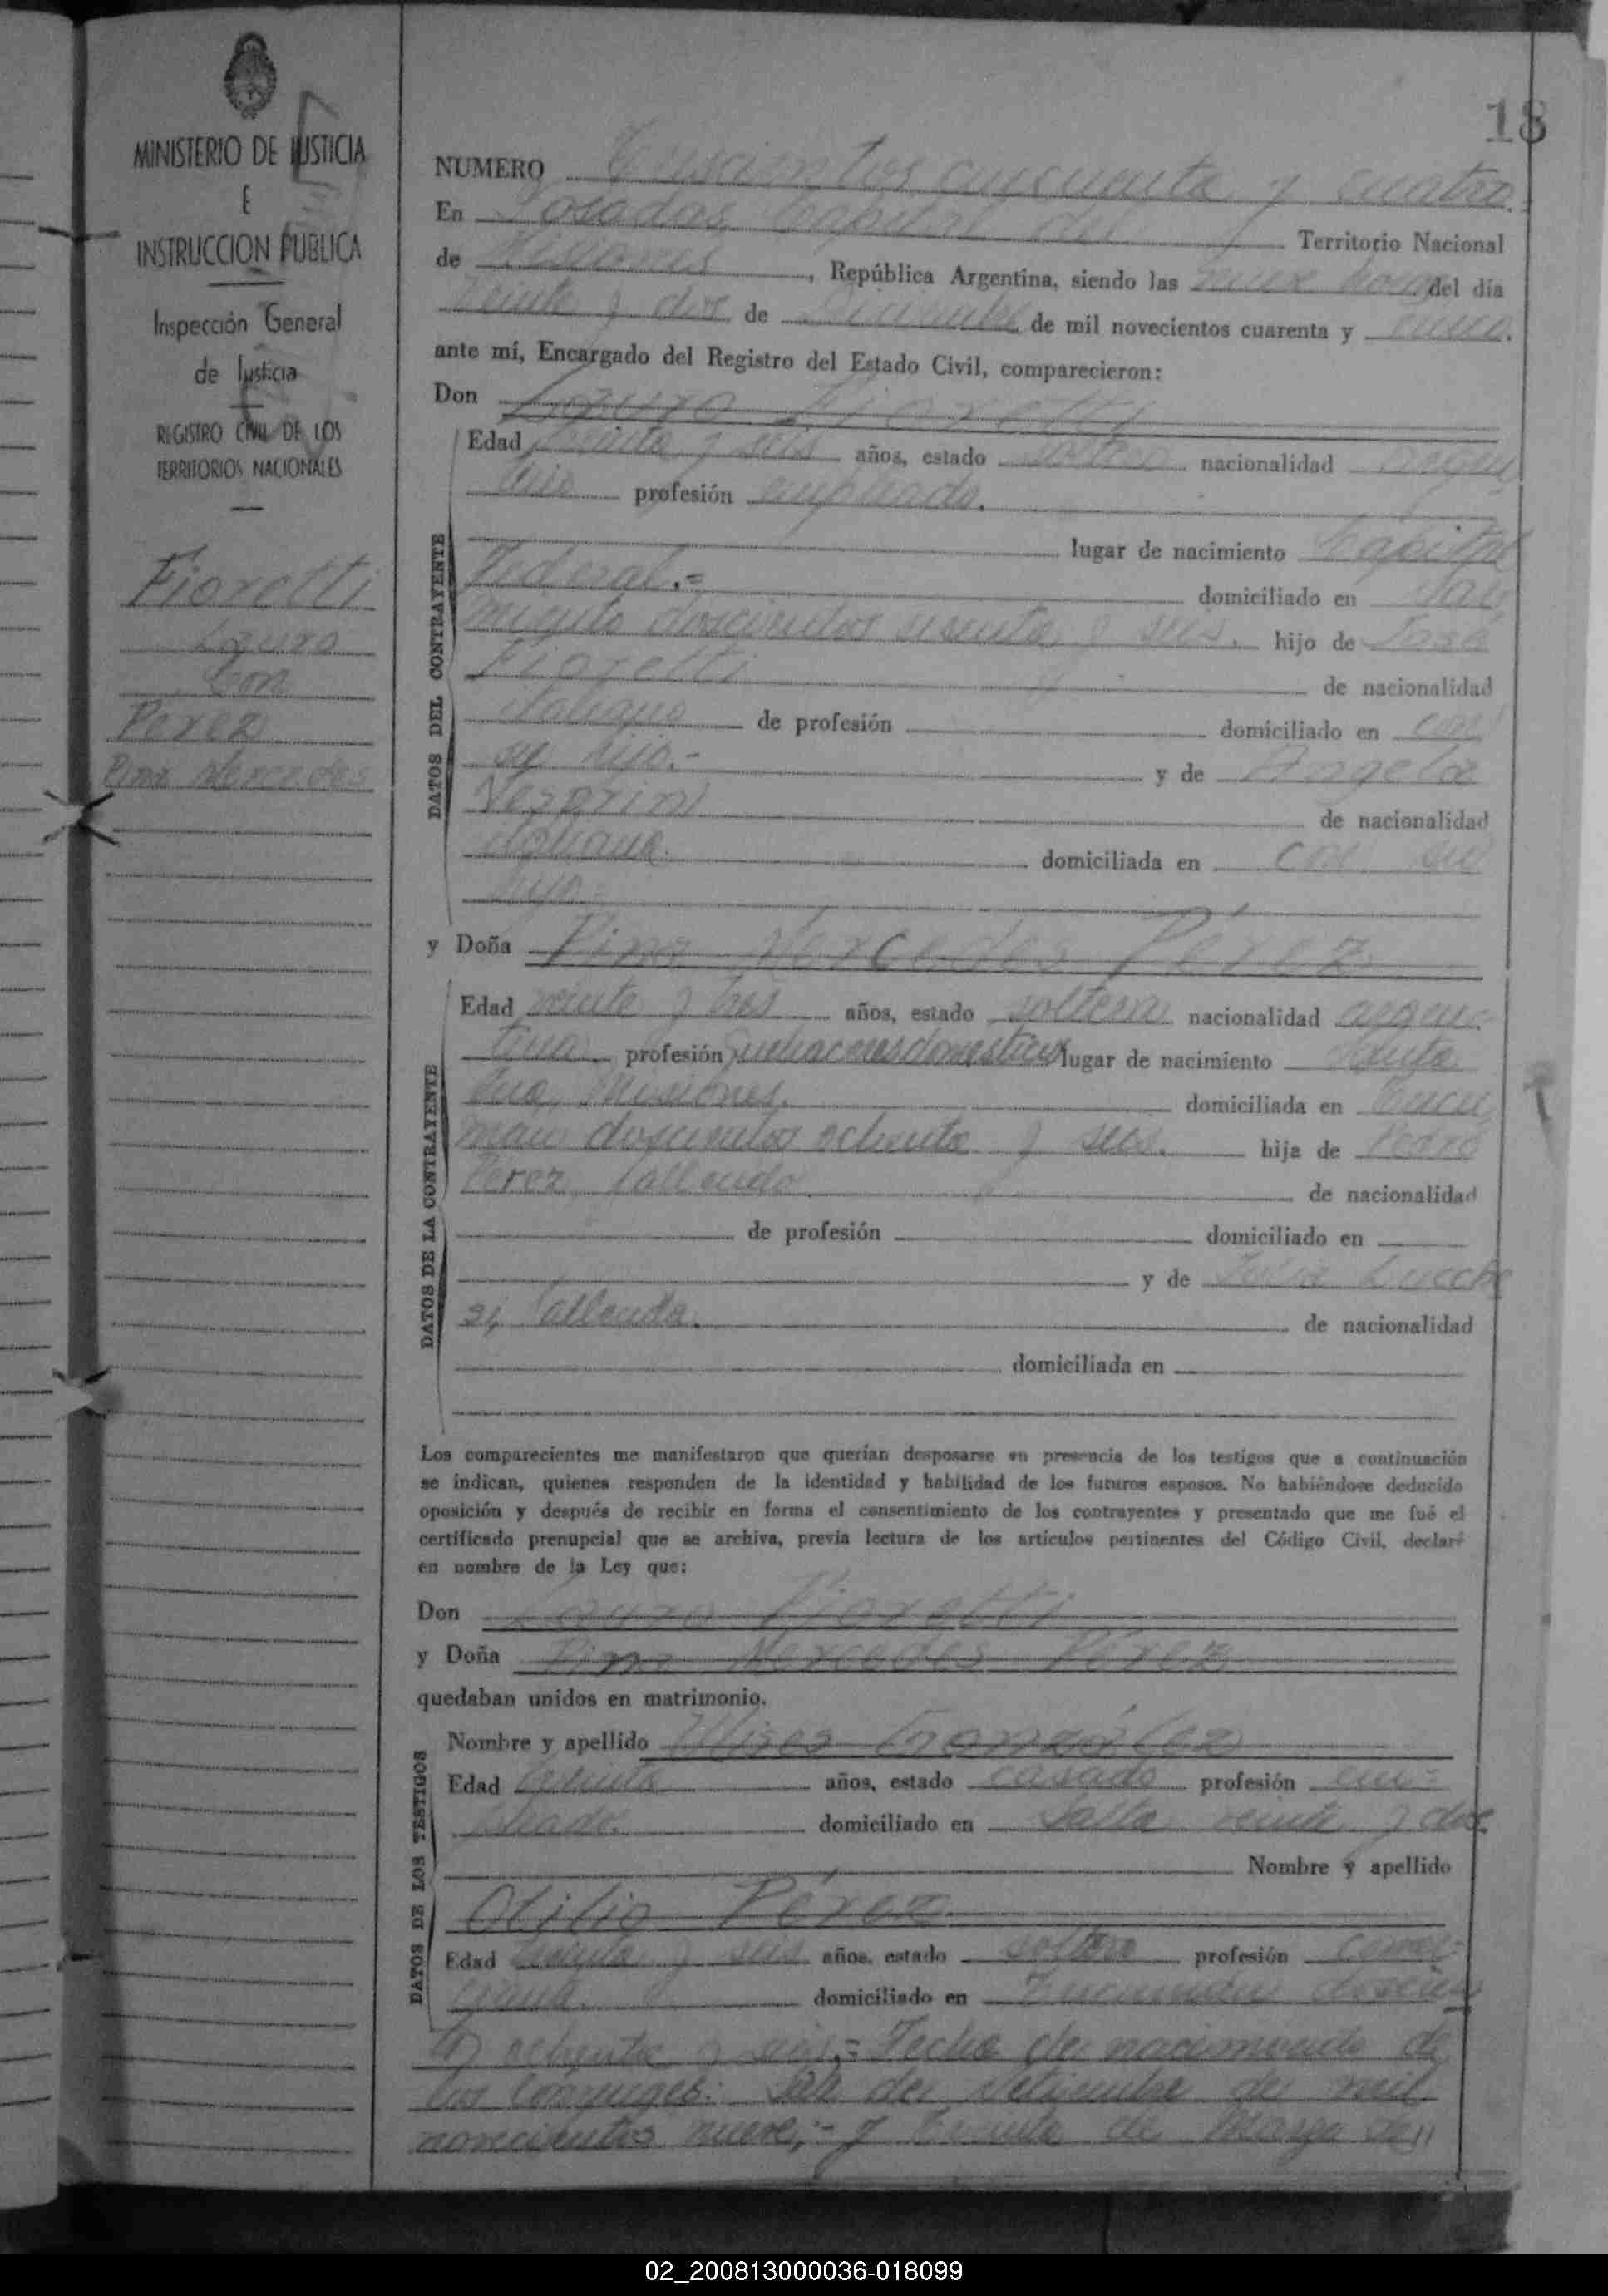 18
MINISTERIO DE JUSTICIA
E
INSTRUCCION PUBLICA
Inspección General
de Justicia
REGISTRO CIVIL DE LOS
TERRITORIOS NACIONALES
Fioretti
Lauro
con
Perez
Pina Mercedes
NUMERO Trescientos cincuenta y cuatro.
En Posadas, Capital del Territorio Nacional
de Misiones, República Argentina, siendo las nueve horas del día
veinte y dos de Diciembre de mil novecientos cuarenta y cinco.
ante mí, Encargado del Registro del Estado Civil, comparecieron:
Don Lauro Fioretti
DATOS DEL CONTRAYENTE
Edad treinta y seis años, estado soltero nacionalidad argen-
tino profesión empleado.
lugar de nacimiento Capital
Federal.=
domiciliado en San
Migito doscientos sesenta y seis. hijo de José
Fioretti
de nacionalidad
italiano de profesión domiciliado en con
su hijo.- y de Angela
Vesprini
de nacionalidad
italiana. domiciliada en con su
hijo.-
y Doña Pina Mercedes Pérez
DATOS DE LA CONTRAYENTE
Edad veinte y tres años, estado soltera nacionalidad argen-
tina profesión quehaceres domesticos lugar de nacimiento Santa
Ana, Misiones. domiciliada en Tucu
man doscientos ochenta y seis. hija de Pedro
Perez, fallecido de nacionalidad
de profesión domiciliado en
y de Lucche
si, fallecida. de nacionalidad
domiciliada en
Los comparecientes me manifestaron que querían desposarse en presencia de los testigos que a continuación
se indican, quienes responden de la identidad y habilidad de los futuros esposos. No habiéndose deducido
oposición y después de recibir en forma el consentimiento de los contrayentes y presentado que me fué el
certificado prenupcial que se archiva, previa lectura de los artículos pertinentes del Código Civil, declaré
en nombre de la Ley que:
Don Lauro Fioretti
y Doña Pina Mercedes Pérez
quedaban unidos en matrimonio.
DATOS DE LOS TESTIGOS
Nombre y apellido Ulises González
Edad treinta años, estado casado profesión em-
pleado. domiciliado en Salta veinte y dos.
Nombre y apellido
Otilio Pérez
Edad treinta y seis años, estado soltero profesión comer-
ciante. domiciliado en Tucumán doscien
tos ochenta y seis.= Fecha de nacimiento de
los conyuges: Siete de Setiembre de mil
novecientos nueve;- y treinta de Marzo de
02_200813000036-018099